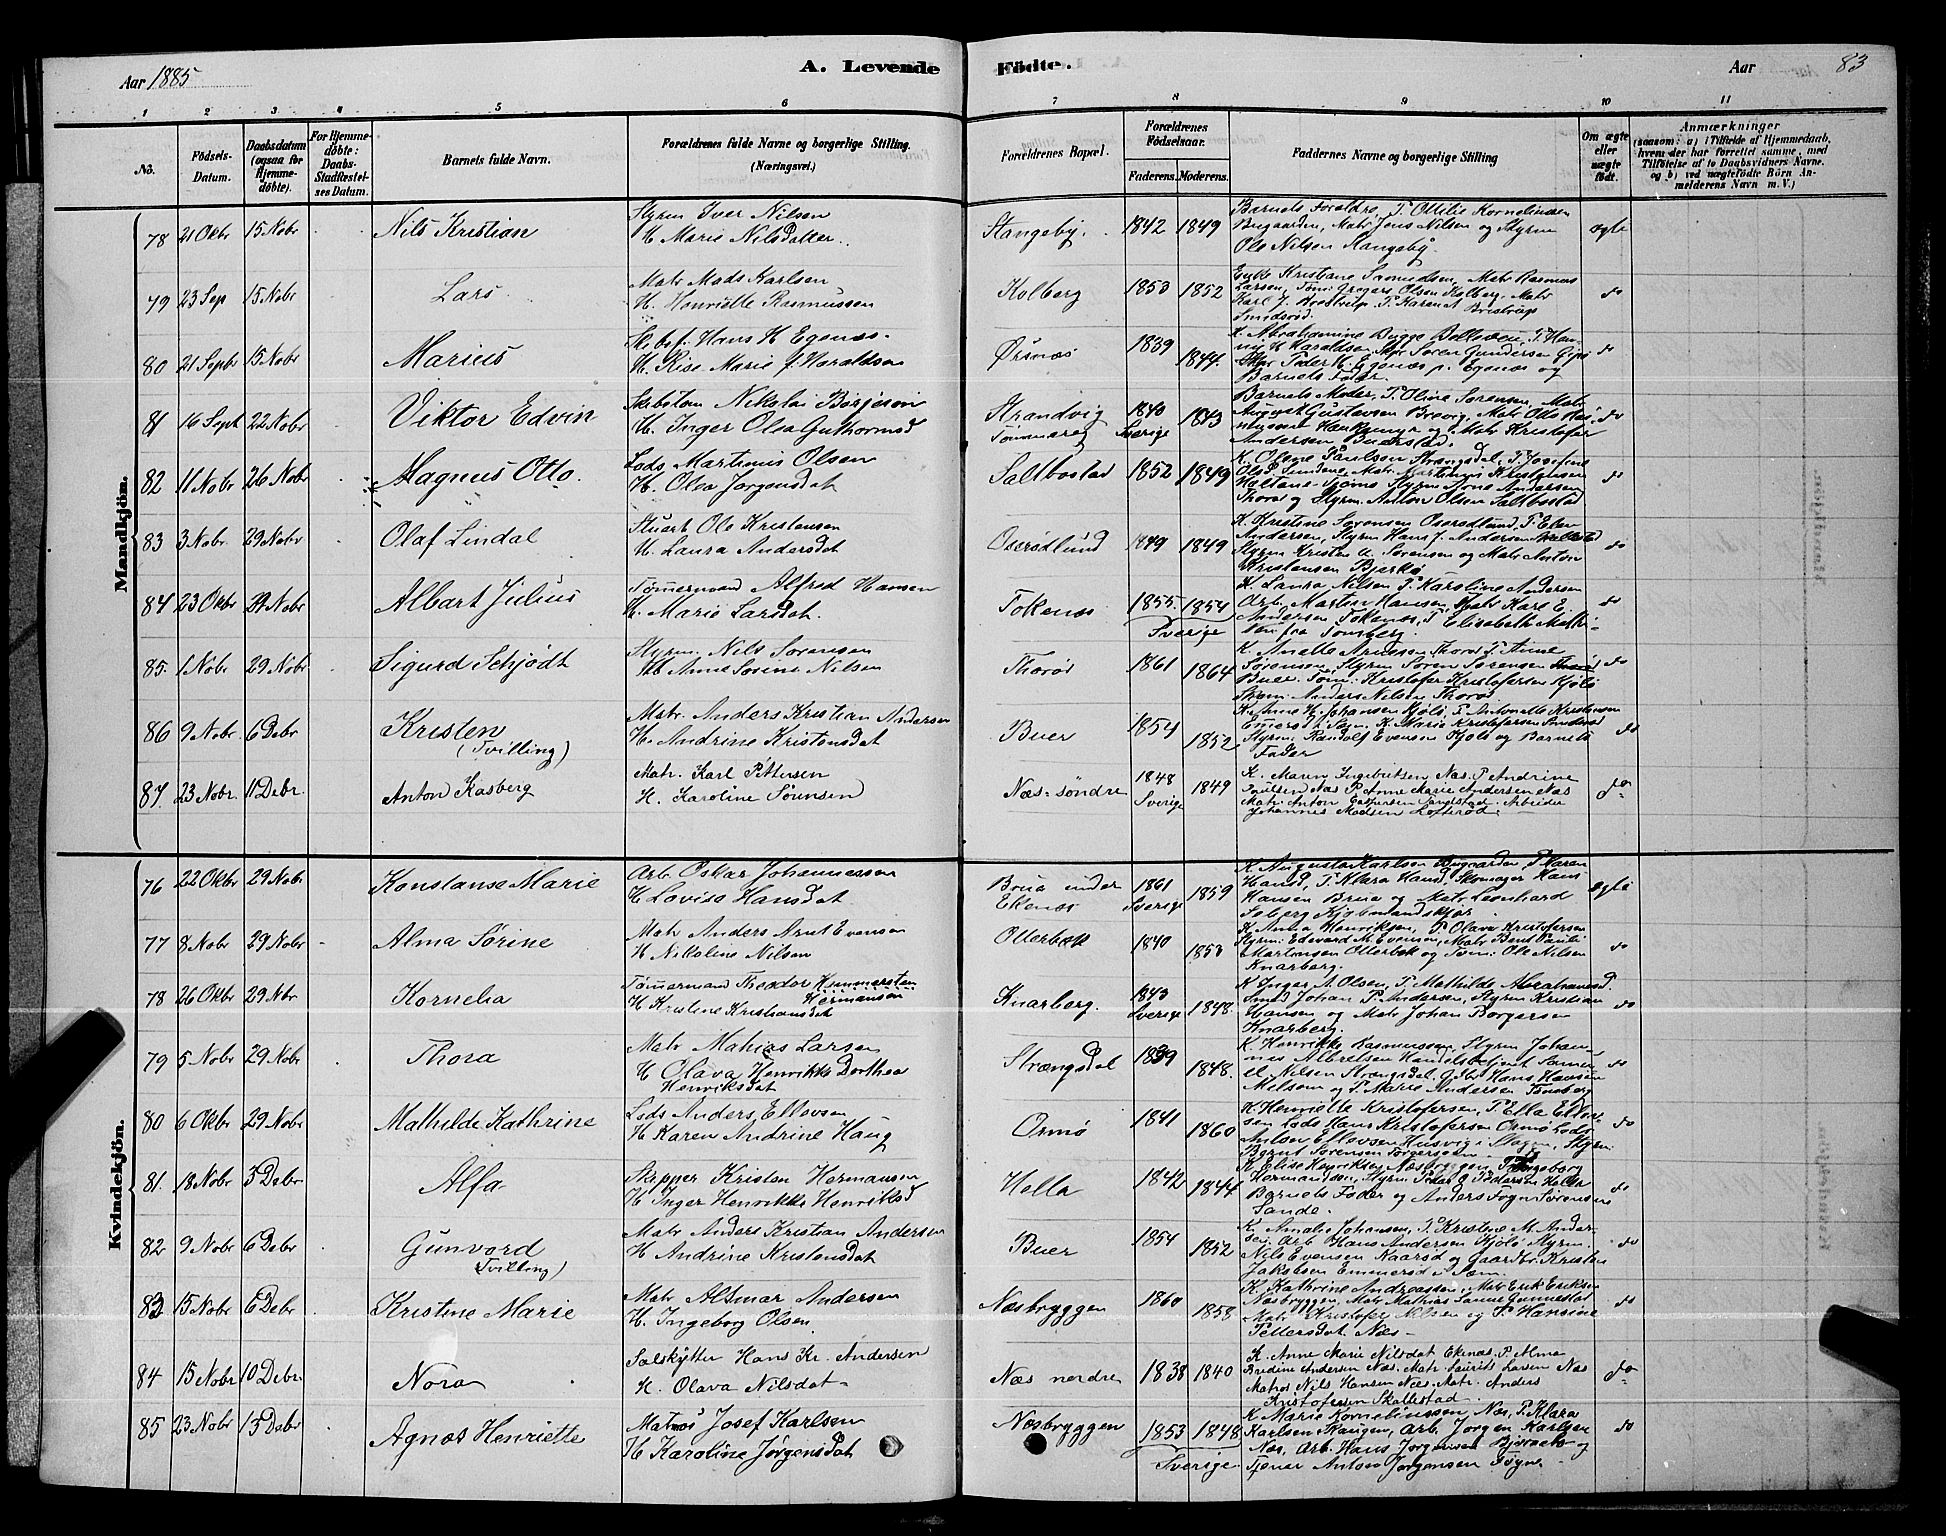 Aar 1885
A. Levende Födte.
Aar
83
1 2 3 4 5 6 7 8 9 10 11
No.
Födsels-Datum.
Daabsdatum (ogsaa for Hjemme-döbte).
For Hjemme-döbte: Daabs-Stadfæstel-ses Datum.
Barnets fulde Navn.
Forældrenes fulde Navne og borgerlige Stilling. (Næringsvei.)
Forældrenes Bopæl.
Forældrenes Födselsaar.
Faderens. Moderens.
Faddernes Navne og borgerlige Stilling
Om ægte eller uægte födt.
Anmærkninger
(saasom: a) i Tilfælde af Hjemmedaab, hvem der har forrettet samme, med Tilföielse af to Daabsvidners Navne. og b) ved uægtefödte Börn Anmelderens Navn m. V.)
Mandkjön.
78 21 Okbr 15 Nobr Nils Kristian
Styrm Iver Nilsen
H. Marie Nilsdatter
Stangeby. 1842 1849
Barnets Foraldre, P. Ottilie Kornelinsen
Bugaarden, Matr Jens Nilsen og Styrm
Ole Nilsen Stangeby
ægte
79 23 Sep 15 Nobr Lars
Matr Mads Karlsen
H. Henriette Rasmussen
Kolberg 1853 1852
Enke Kristiane Samuelsen, Matr Rasmus
Larsen, Tøm. Gregers Olsen Kolberg, Matr
Smidsrød.
do
80 21 Sepbr 15 Nobr Marius
Skibsf. Hans H Egenæs
H. Rise Marie f. Haraldsen
Ørsnæs 1839 1844.
K. Abrahamine Bugge
Søren Gundersen
Barnets Fader.
do
81 16 Sept 22 Nobr Viktor Edvin
Skibstøm Nikolai Børjeson
H. Inger Olea Guthormsd
Strandvig 1840 Sverige 1843
Barnets Moder, P. Oline Sørensen, Matr
August Gustavsen Brevig, Matr Otto
og Matr Kristofer
Andersen Buerstad.
do
82 11 Nobr 26 Nobr Magnus Otto.
Lods Martinus Olsen
H. Olea Jørgensdat
Saltbostad 1852 1849
K. Oline Paulsen Strængsdal, P. Josefine
Styrm Arne Andersen
Thorød og Styrm. Anton Olsen Saltbostad
do
83 3 Nobr. 29 Nobr Olaf Lindal
Stuart Ole Kristensen
H. Laura Andersdat
Oserødlund 1849 1849
K. Kristine Sørensen Oserødlund, P. Elen
Andersen, Styrm Hans J. Andersen
Styrm Kristen A. Sørensen og Matr Anton
Kristensen Bjerkø
do
84 23 Okbr 29 Nobr Albart Julius
Tømermand Alfred Hansen
H. Marie Larsdat.
Tokenæs 1855 1854
Sverige
K. Laura Nilsen P. Karoline Andersen
Arb. Martin Hansen, Matr Karl E.
Andersen Tokenæs, P. Elisabeth
fra Tønsberg.
do
85. 1 Nobr 29 Nobr Sigurd Schjödt
Styrm. Nils Sørensen
H. Anne Sørine Nilsen
Thorød 1861 1864
K. Anette Arnesen Thorød P. Anne
Sørensen, Styrm Søren Sørensen
Buer Tøm. Kristofer Kristofersen Kjøle
Anders Nilsen Thorød
do
86 9 Nobr. 6 Debr Kristen
(Tvilling)
Matr. Anders Kristian Andersen
H. Andrine Kristensdat
Buer 1854 1852
K. Anne H. Johansen Kjøle, P. Antonette Kristensen
K. Marie Kristofersen
Styrm Randolf Evensen Kjøle og Barnets
Fader
do
87 23 Nobr. 11 Debr. Anton Kasberg
Matr. Karl Pettersen
H. Karoline Sørensen
Næs söndre 1848 Sverige 1849
K. Maren Ingebritsen Næs. P. Andrine
Paulsen Næs P. Anne Marie Andersen Næs
Matr. Anton Caspersen Arbeider
Johannes Madsen Lofterød
do
Kvindekjön.
76 22 Okbr 29 Nobr Konstanse Marie
Arb. Oskar Johannessen
H Lovise Hansdat.
Brua under Ekenæs 1861 Sverige 1859
K. Augusta Karlsen Bugaarden, P. Karen
Hansd, P. Klara Hansd, Skomager Hans
Hansen Brua og Matr Leonhard
ægte
77 8 Nobr 29 Nobr Alma Sørine
Matr Anders Arnt Evensen
H Nikoline Nilsen
Ollerbæk 1840 1853
K Anna Henriksen, P. Olava Kristofersen
Styrm. Edevard M. Evensen, Matr Bent Pauli
Martinsen Ollerbæk og Tøm. Ole Nilsen
Knarberg.
do
78 26 Okbr 29 Nbr Kornelia
Tømermand Theodor Hemmersten
Hermansen
H Kristine Kristiansdat
Knarberg. 1843 Sverige 1848.
K Inger A Olsen, P. Mathilde Abrahamsd.
Smed Johan P. Andersen, Styrm Kristian
Hansen og Matr Johan Borgersen
Knarberg.
do
79 5 Nobr 29 Nobr Thora
Matr Mathias Larsen
H Olava Henrikke Dorthea
Henriksdat
Strængsdal 1839 1848.
K. Henrikke Rasmussen, Styrm Johan-
nes Albretsen Handelsbetjent
Nilsen Strængsdal, Gdbr Hans Hansen
Melsom og P. Marie Andersen Tønsberg
do
80 6 Okbr 29 Nobr Mathilde Kathrine
Lods Anders Ellevsen
H Karen Andrine Haug
Ormø 1841 1860
K. Henriette Kristofersen, P. Ella Ellev-
sen Lods Hans Kristofersen Ormø Lods
Anton Ellevsen Husvig i Slagen, Styrm
Bernt Sørensen
do
81. 18 Nobr 3 Debr Alfa
Skipper Kristen Hermansen
H Inger Henrikke Henriksd
Hella 1842 1844
K Elise Henriksen Næsbryggen P. Ingeborg
Hermandsen, Styrm Peder O Pedersen Hella
Barnets Fader og Anders Sørensen
Sande.
do
82 9 Nobr 6 Debr Gunvord
(Tvilling)
Matr Anders Kristian Andersen
H Andrine Kristensdat
Buer 1854 1852
K. Amalie Johansen, P. Kristine M. Ander-
sen, Arb. Hans Andersen Kjøle Styrm
Nils Evensen Kaarød og Gaardbr. Kristen
Jakobsen Emmersø i Sæm.
do
83 15 Nobr 6 Debr Kristine Marie
Matr Altmar Andersen
H. Ingeborg Olsen
Næsbryggen 1860 1858
K. Kathrine Andreassen, Matr Erik Eriksen
Næsbryggen, Matr Mathias
Matr Kristofer Nilsen og P. Hansine
Pettersdat Næs
do
84 15 Nobr 10 Debr. Nora
Sælskytter Hans Kr. Andersen
H. Olava Nilsdat
Næs nordre 1838 1840
K. Anne Marie Nilsdat Ekenæs. P. Alma
Budine Andersen Næs. Matr. Laurits Larsen Næs
Matros Nils Hansen Næs. Matr. Anders
Kristofersen Skallestad
do
85 23 Nobr 13 Debr Agnes Henriette
Matros Josef Karlsen
H Karoline Jørgensdat
Næsbryggen 1853 1848
Sverige
K Marie Kornelinssen Næs, P. Klara
Karlsen Skaugen, Arb. Jørgen Karlsen
Næs, Arb. Hans Jørgensen Bjerkø og
Tjener Anton Jørgensen
do